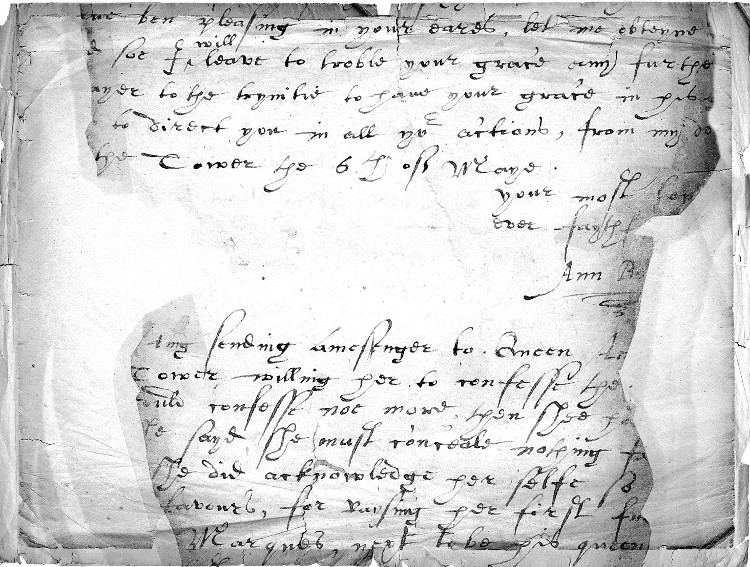 ben pleasing in your eares, let me obteyne
soe I will leave to troble your grace any furthe
ayer to the trynitie to have your grace in his
to direct you in all yor actions, from my do
the Tower the 6th of Maye.
your most
ever fayth
Ann B
ing sending a messenger to Queen
Tower willing her to confesse the
ould confesse noe more, then shee
he sayd she must conceale nothing
she did acknowledge her selfe
favours, for raysing her first
Marques next to be his queen